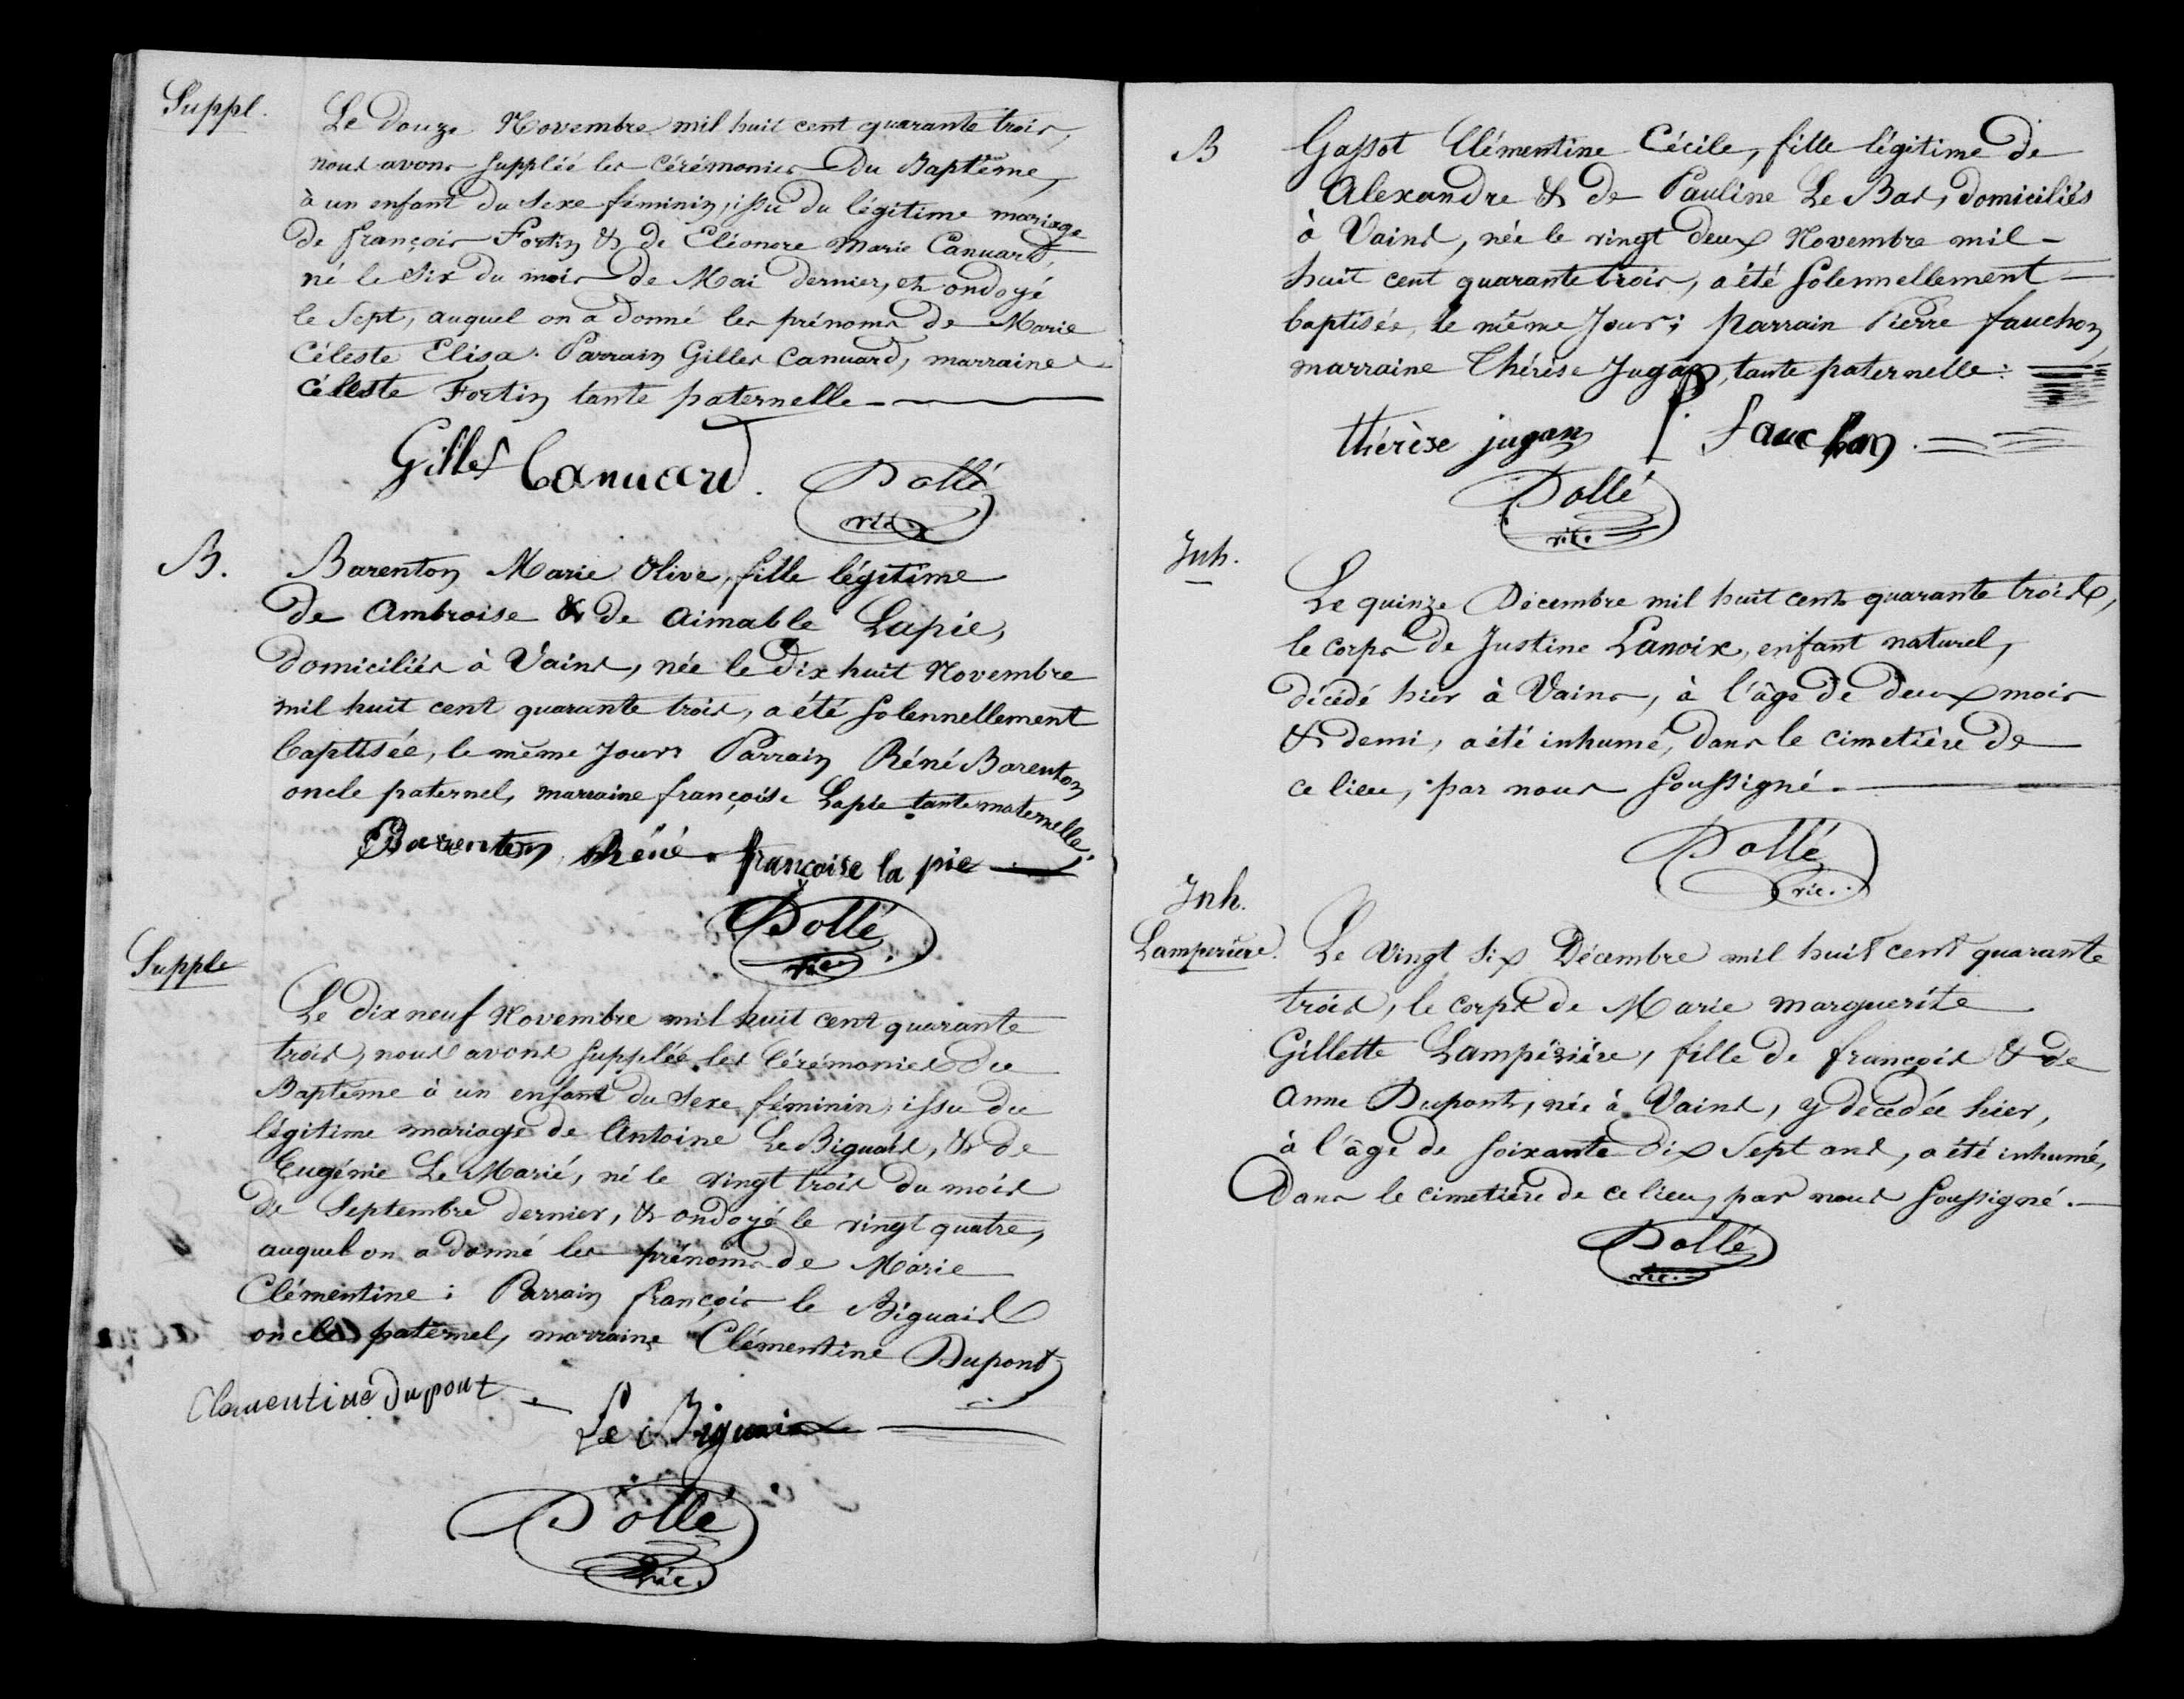 Suppl.
Le douze Novembre mil huit cent quarante trois,
nous avons suppléé les cérémonies du Baptême,
à un enfant du sexe féminin, issu du légitime mariage
de françois Fortin & de Eléonore Marie Canuard,
né le six du mois de Mai dernier, et ondoyé
le Sept, auquel on a donné les prénoms de Marie
Céleste Elisa. Parrain Gilles Canuard, marraine
Céleste Fortin tante paternelle
Gilles Canuard. Dollé
vic.
B.
Barenton Marie Olive, fille légitime
de Ambroise & de Aimable Lapie,
domiciliés à Vains, née le dix huit Novembre
mil huit cent quarante trois, a été solennellement
baptisée, le même Jour: Parrain Réné Barenton
oncle paternel, marraine françoise Lapie tante maternelle.
Barenton Réné françoise la pie
Dollé
vic.
Supple
Le dix neuf Novembre mil huit cent quarante
trois, nous avons suppléé les Cérémonies du
Baptême à un enfant du sexe féminin, issu du
légitime mariage de Antoine Le Biguais, & de
Eugénie Le Marié, né le vingt trois du mois
de Septembre dernier, & ondoyé le vingt quatre,
auquel on a donné les prénoms de Marie
Clémentine: Parrain françois le Biguais
oncle paternel, marraine Clémentine Dupont
Clementine Dupont
Le Biguais
Dollé
vic.
B
Gassot Clémentine Cécile, fille légitime de
Alexandre & de Pauline Le Bas, domiciliés
à Vains, née le vingt deux Novembre mil
huit cent quarante trois, a été solennellement
baptisée, le même Jour: parrain Pierre fauchon
marraine Thérèse Jugan, tante paternelle:
thérèse jugan P. fauchon.
Dollé
vic.
Inh.
Le quinze Décembre mil huit cent quarante trois,
le corps de Justine Lanoix, enfant naturel,
décédé hier à Vains, à l'âge de deux mois
& demi, a été inhumé, dans le cimetière de
ce lieu, par nous soussigné.
Dollé
vic.
Inh.
Lamperière.
Le vingt six Décembre mil huit cent quarante
trois, le corps de Marie Marguerite
Gillette Lampérière, fille de françois & de
Anne Dupont, née à Vains, y décedée hier,
à l'âge de soixante dix sept ans, a été inhumé,
Dans le cimetière de ce lieu, par nous soussigné.
Dollé
vic.